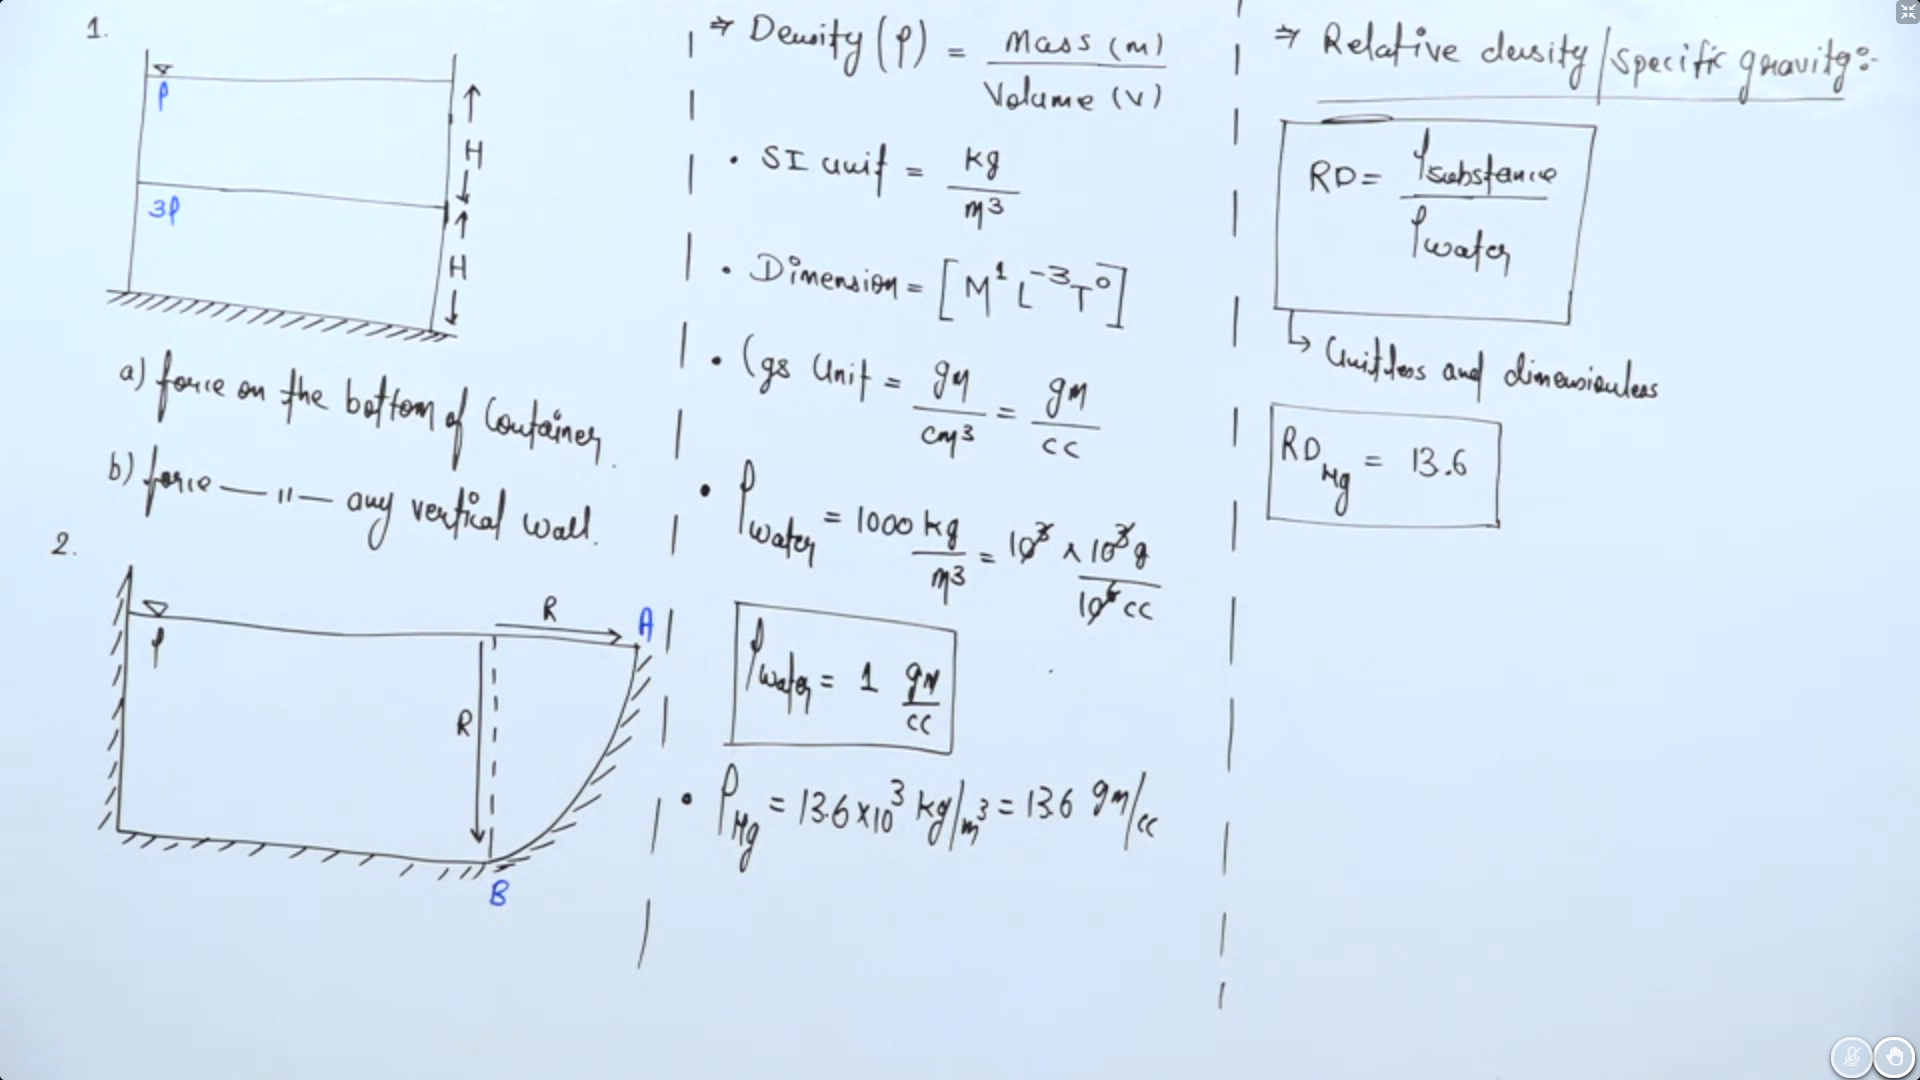 1.
ρ
H
3ρ
H
a) force on the bottom of Container.
b) force —〃— any vertical wall.
2.
R
A
ρ
R
B
⇒ Density (ρ) = Mass (m) / Volume (V)
• SI unit = kg / m³
• Dimension = [M¹ L⁻³ T⁰]
• Cgs Unit = gm / cm³ = gm / cc
• ρwater = 1000 kg / m³ = 10³ × 10³ g / 10⁶ cc
ρwater = 1 gm / cc
• ρHg = 13.6×10³ kg/m³ = 13.6 gm/cc
⇒ Relative density/specific gravity:-
RD = ρsubstance / ρwater
↳ Unitless and dimensionless
RDHg = 13.6